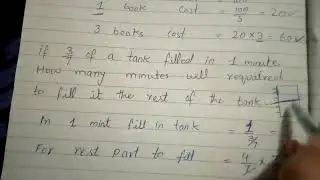 1 book cost = 100/5 = 20
3 books cost = 20×3 = 60
if 3/7 of a tank filled in 1 minute
How many minutes will required
to fill it the rest of the tank
In 1 mint fill in tank = 1/(3/7) =
For rest part to fill = 4/7 ×